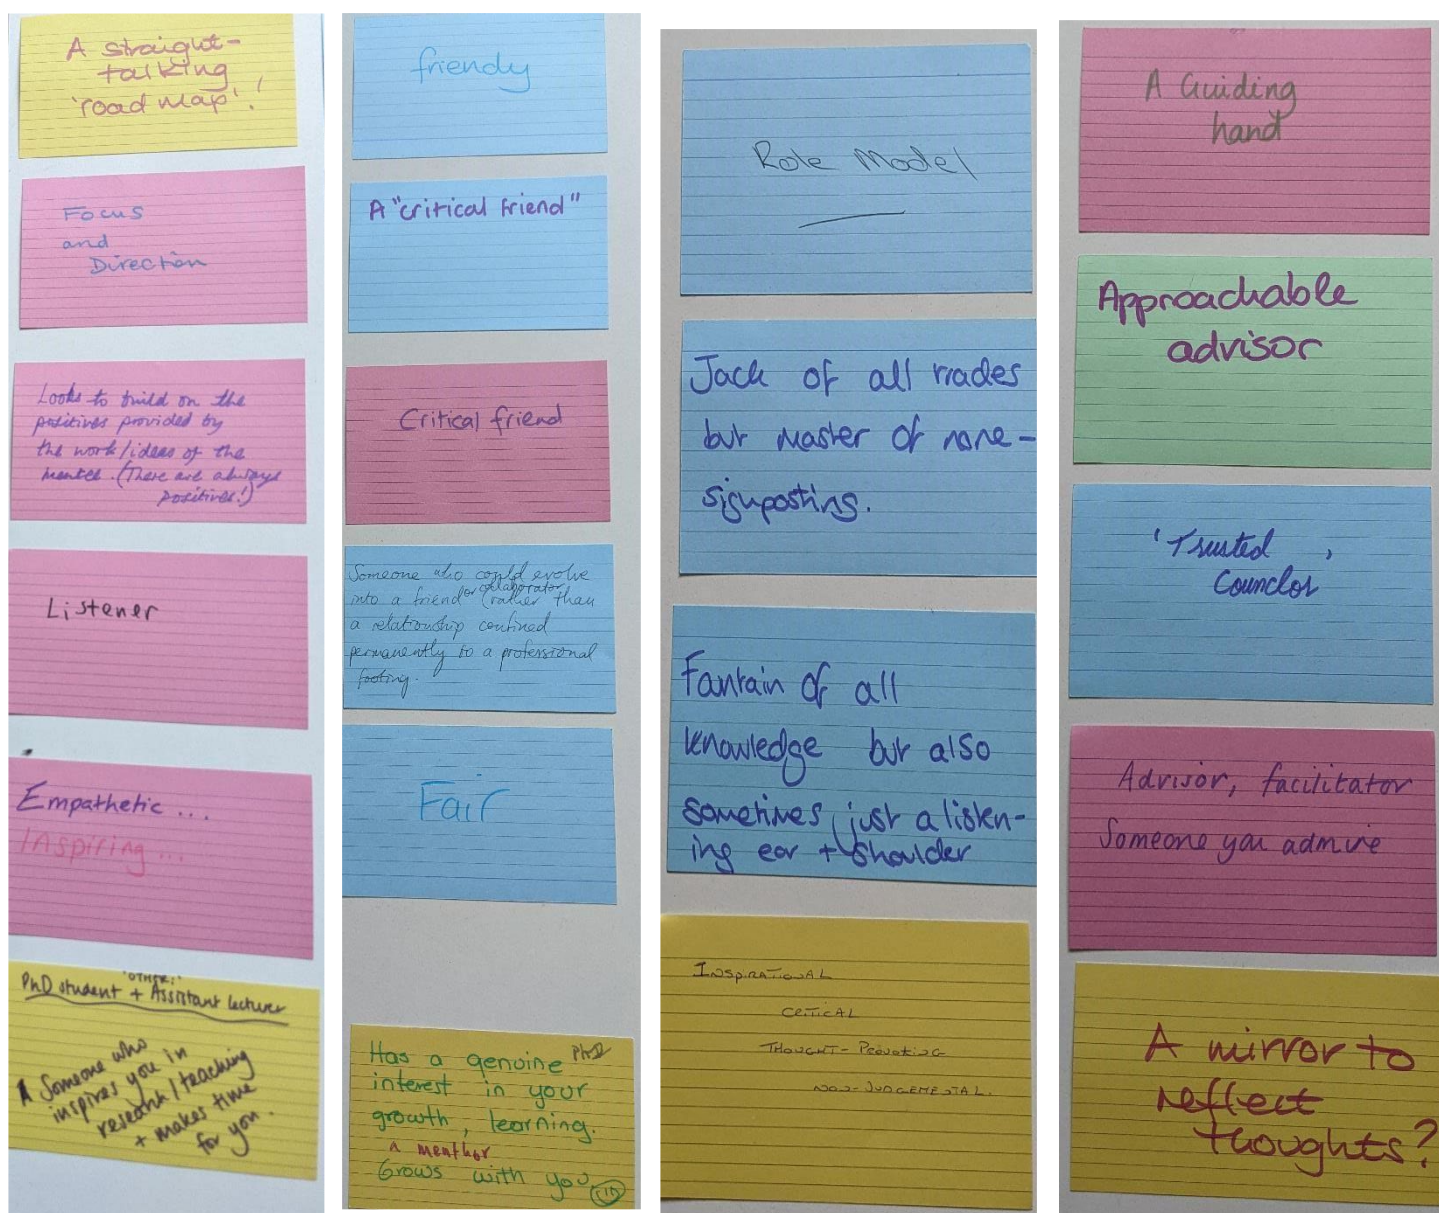 A straight-
talking
'road map'!
Focus
and
Direction
Looks to build on the
positives provided by
the work/ideas of the
mentee. (There are always
positives!)
Listener
Empathetic...
Inspiring...
'OTHER:'
PhD student + Assistant lecturer
Someone who
inspires you in
research/teaching
+ makes time
for you.
friendy
A "critical friend"
Critical friend
Someone who could evolve
or collaborator
into a friend (rather than
a relationship confined
permanently to a professional
footing.
Fair
Has a genuine PhD
interest in your
growth, learning.
a menthor
Grows with you
Role Model
Jack of all trades
but master of none -
signposting.
Fantain of all
knowledge but also
sometimes just a listen-
ing ear + shoulder
INSPIRATIONAL
CRITICAL
THOUGHT-PROVOKING
NON-JUDGEMENTAL.
A Guiding
hand
Approachable
advisor
'Trusted '
Counclor
Advisor, facilitator
Someone you admire
A mirror to
reflect
thoughts?